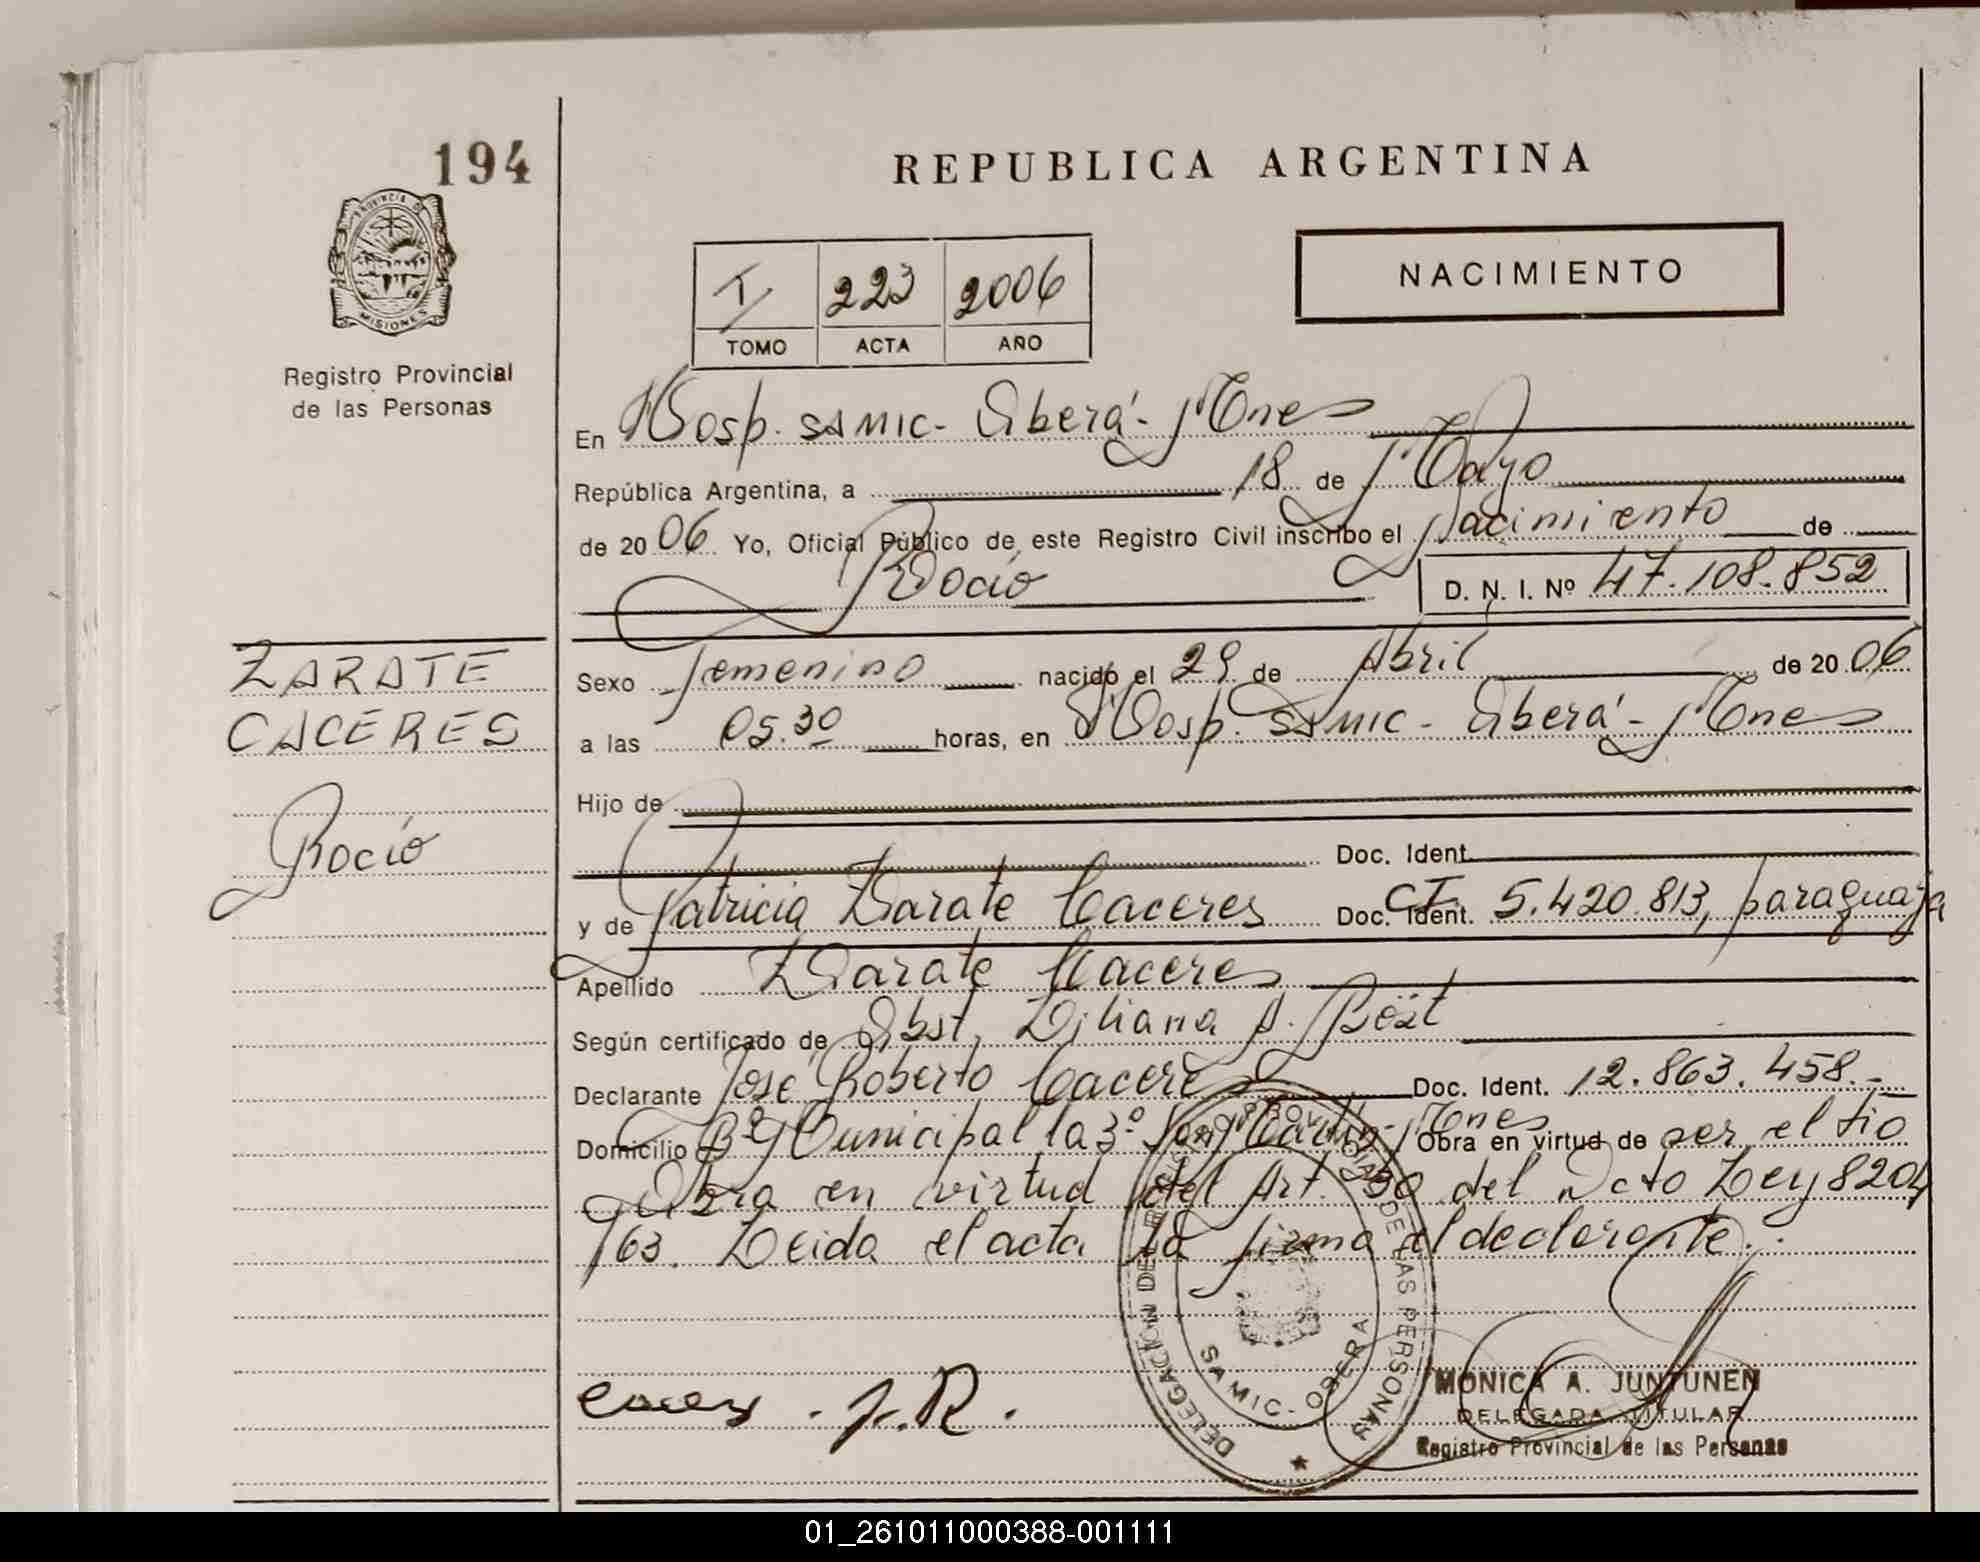 194
REPUBLICA ARGENTINA
PROVINCIA DE
MISIONES
NACIMIENTO
I 223 2006
TOMO ACTA AÑO
Registro Provincial
de las Personas
En Hosp. SAMIC- Oberá- Mnes
República Argentina, a 18 de Mayo
de 2006 Yo, Oficial Público de este Registro Civil inscribo el Nacimiento de
Rocío D. N. I. Nº 47.108.852
ZARATE
CACERES
Rocío
Sexo femenino nacido el 29 de Abril de 2006
a las 05.30 horas, en Hosp. SAMIC- Oberá- Mnes
Hijo de
Doc. Ident.
y de Patricia Zarate Caceres Doc. Ident. CI. 5.420.813, paraguaja
Apellido Zarate Caceres
Según certificado de Obst. Liliana A.
Declarante José Roberto Cacere Doc. Ident. 12.863.458.-
Domicilio Bº Municipal la 3º San Martín- Mnes Obra en virtud de ser el tío
Obra en virtud del Art. 30 del Dcto Ley 8204
/63. Leida el acta la firma el declarante.
J.R.
DELEGACION DEL REGISTRO PROVINCIAL DE LAS PERSONAS
SAMIC - OBERA
MONICA A. JUNTUNEN
DELEGADA TITULAR
Registro Provincial de las Personas
01_261011000388-001111